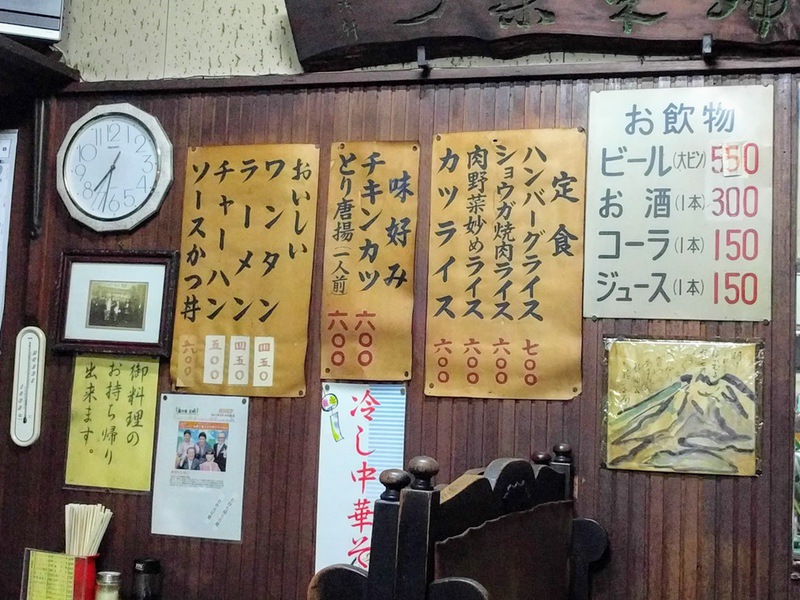 おいしい
ワンタン 四五〇
ラーメン 四五〇
チャーハン 五〇〇
ソースかつ丼 六〇〇
味好み
チキンカツ 六〇〇
とり唐揚(一人前) 六〇〇
定食
ハンバーグライス 七〇〇
ショウガ焼肉ライス 六〇〇
肉野菜妙めライス 六〇〇
カツライス 六〇〇
お飲物
ビール(大ビン) 550
お酒(1本) 300
コーラ(1本) 150
ジュース(1本) 150
御料理の
お持ち帰り
出来ます。
冷し中華そ